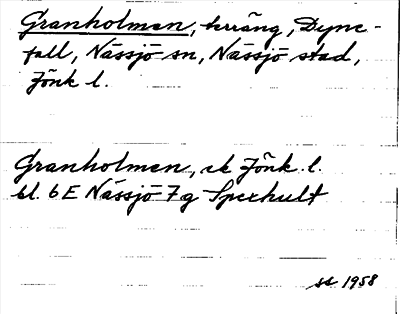 Granholmen, terräng, Dyne-
fall, Nässjö sn, Nässjö stad,
Jönk l.
Granholmen, ek Jönk. l.
bl. 6E Nässjö 7g Spexhult
ss 1958